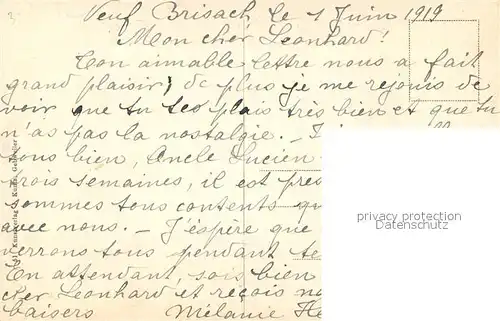 Neuf Brisach, le 1 Juin 1919
Mon cher Leonhard!
Ton aimable lettre nous a fait
grand plaisir, de plus je me rejouis de
voir que tu tes plais très bien et que tu
n'as pas la nostalgie. –
tous bien, Oncle Lucien
trois semaines, il est
sommes tous contents
avec nous. – J'éspère que
verrons tous pendant
En attendant, sois bien
cher Leonhard et reçois
baisers Mélanie
privacy protection
www.oldthing.de